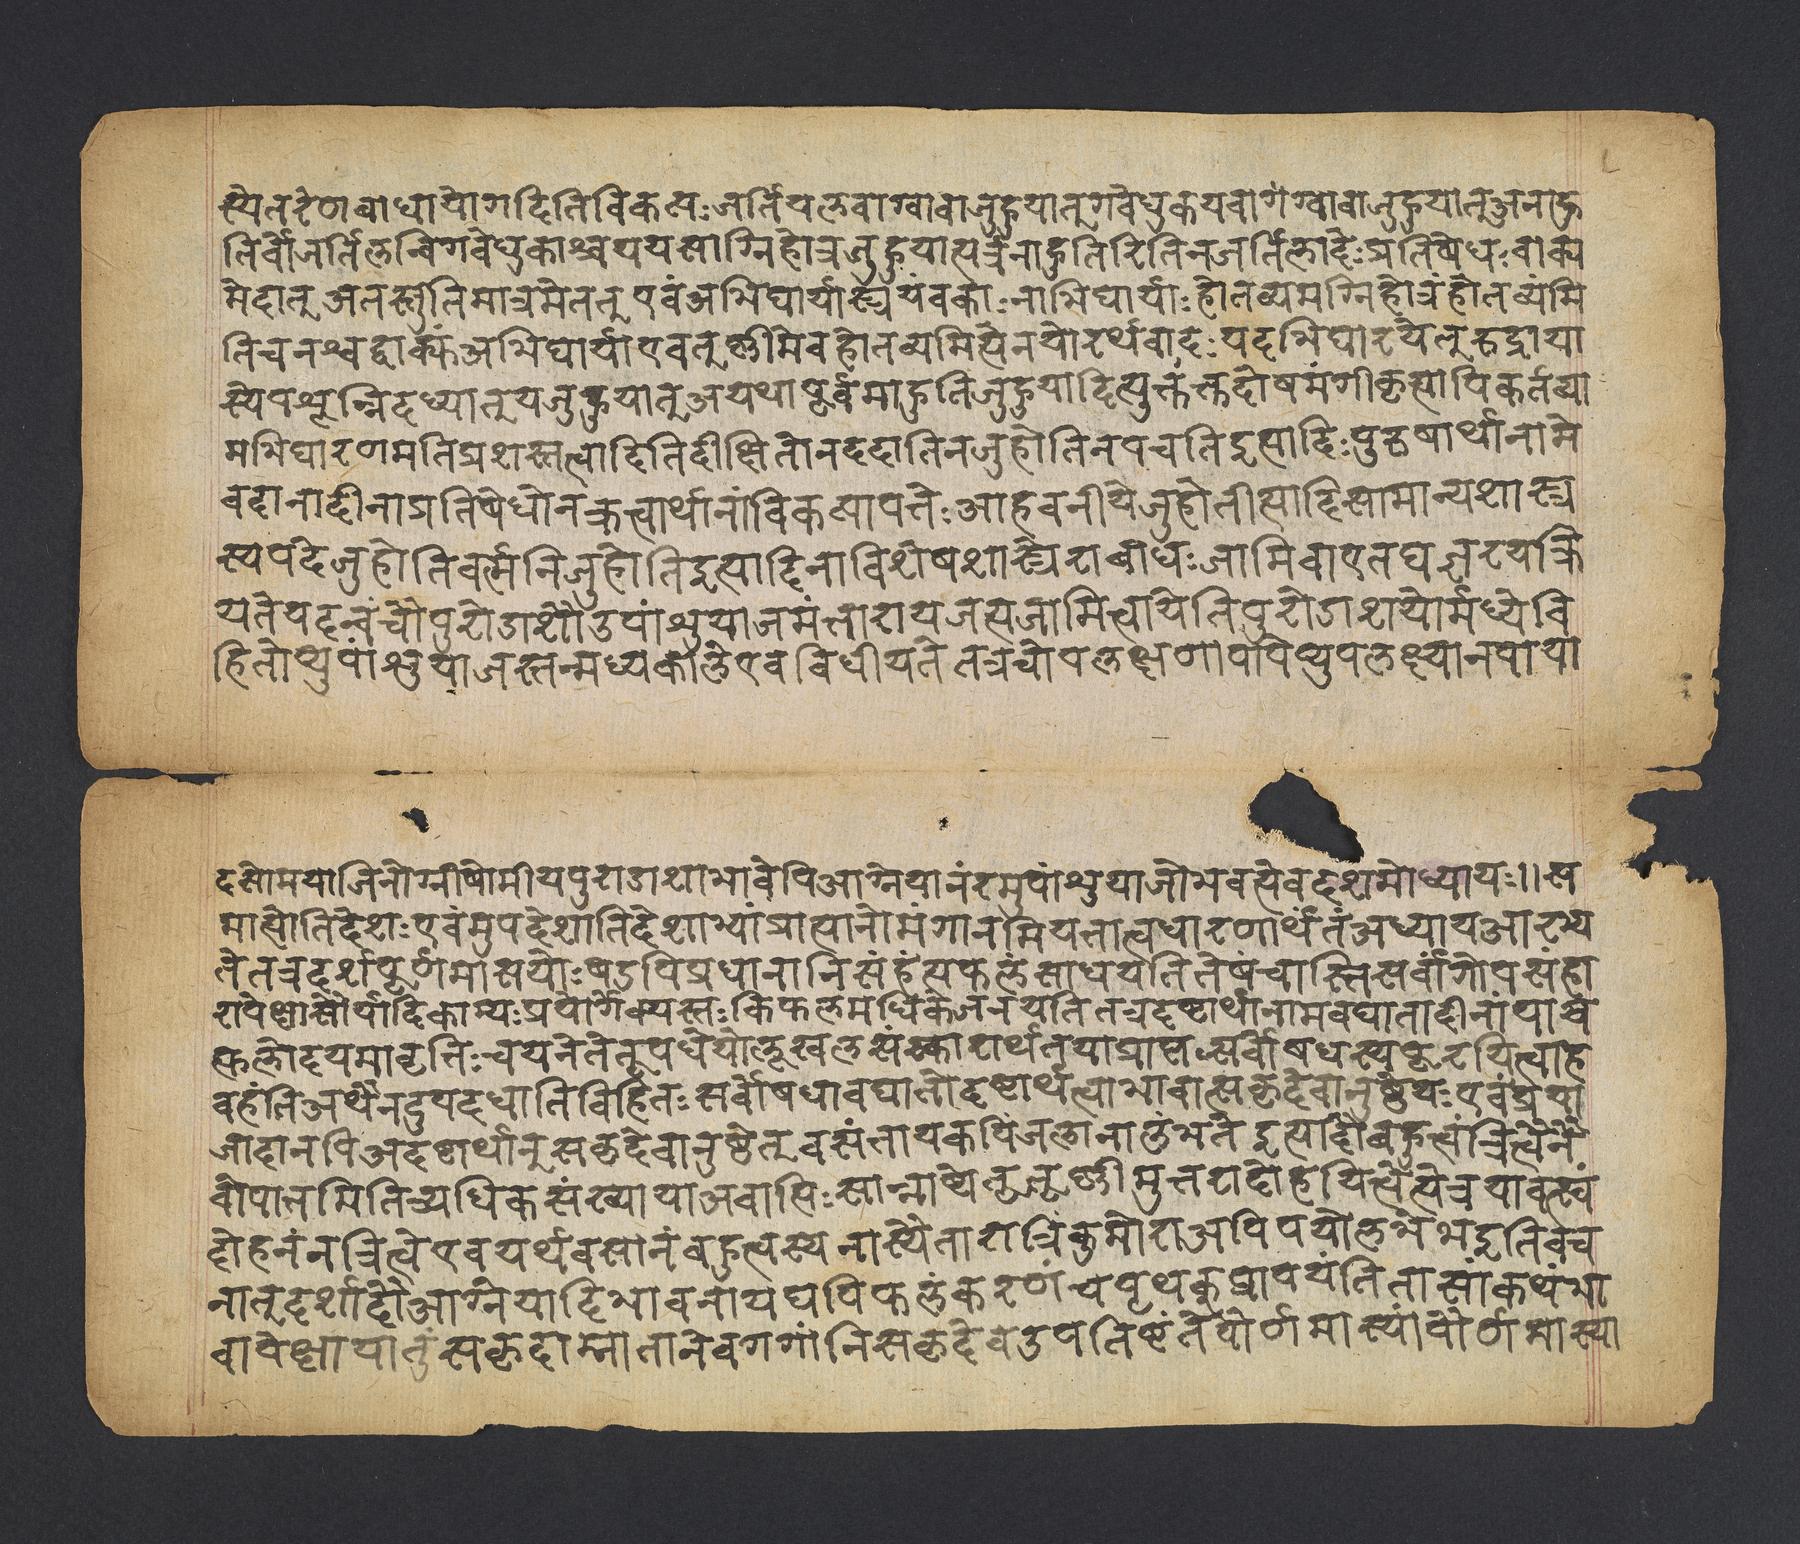 स्येतरेणबाधायोगदितिविकल्पःजर्तिलयवाग्वावाजुहुयात्गवेधुकयवाग्वावाजुहुयात्अनाहु
तिर्वैजर्तिलाश्चगवेधुकाश्चपयसाग्निहोत्रजुहुयात्पत्रेनाहुतिरितिनजर्तिलादेःप्रतिषेधःवाक्य
भेदात्अतस्तुतिमात्रमेतत्एवंअभिघार्यास्त्र्यंबकाःनाभिघार्याःहोतव्यमग्निहोत्रंहोतव्यंमि
तिचनश्वद्वाक्यंअभिघार्याएवतुष्णीमेवहोतव्यमित्येनयोरर्थवादःयदभिघारयेत्रुद्राया
स्येपशून्निदध्यात्यजुहुयात्अयथापूर्वमाहुतिजुहुयादित्युक्तंक्तदोषमंगीकृत्यापिकर्तव्या
मभिघारणमतिप्रशस्तत्वादितिदीक्षितोनददातिनजुहोतिनपचतिइत्यादिःपुरुषार्थानामे
वदानादीनाप्रतिषेधोनक्रत्वार्थानांविकल्पापत्तेःआहवनीयेजुहोतीत्यादिसामान्यशास्त्र
स्यपदेजुहोतिवर्त्मनिजुहोतिइत्यादिनाविशेषशास्त्रेराबाधःजामिवाएतद्यज्ञस्यक्रि
यतेयदन्वंचौपुरोडाशौउपांशुयाजमंत्तारायजत्यजामित्वायेतिपुरोडाशयोर्मध्येवि
हितोप्युपांशुयाजस्तन्मध्यकालेएवविधीयतेतत्रचोपलक्षणापायेप्युपलक्ष्यानपाया
दसोमयाजिनोग्नीषोमीयपुराडाशाभावेपिआग्नेयानंरमुपांशुयाजोभवत्येवदशमोध्यायः॥स
माप्तोतिदेशःएवंमुपदेशातिदेशाभ्यांप्राप्तानोमंगानमियत्तात्वधारणार्थंतंअध्यायआरभ्य
तेतत्रदर्शपूर्णमासयोःषडपिप्रधानानिसंहंत्यफलंसाधयंतितेषंचास्तिसर्वांगोपसंहा
रापेक्षासौर्यादिकाम्यःप्रयोगैक्यस्तःकिफलमधिकेजनयतितत्रदृष्टार्थानामवघातादीनांयाचं
त्फलोदयमावृत्तिःचयनेतेतूपधेयोलूखलसंस्कारार्थतयाप्राप्तःसर्वोषधस्यपूरयित्वाह
वहंतिअर्थैनदुपदधातिविहितःसर्वोषधावघातोदृष्टार्थत्वाभावात्सकृदेवानुष्ठेयःएवंप्रया
जादानपिअदृष्टार्थानुसकृदेवानुष्ठेत्वसंतायकपिंजलानालंभतेइत्यादौबहुत्वंत्रित्वेनै
वोपात्तमितित्र्यधिकसंख्यायाअवाप्तिःसान्नाय्येतुतूष्णीमुत्तरादोहयित्वेत्यत्रयावत्स्वं
दोहनंनत्रित्वेएवयर्थवसानंबहुत्वस्यनास्येतारात्रिंकुमोराअपिपयोलभेभइतिवच
नात्दर्शादौआग्नेयादिभावनायद्यपिफलंकरणंचपृथक्प्रापयंतितासांकथंभा
वापेक्षायातुंसकृदाम्नातानेवगगांनिसकृदेवेउपतिष्टंतेपौर्णमास्यांपौर्णमास्या